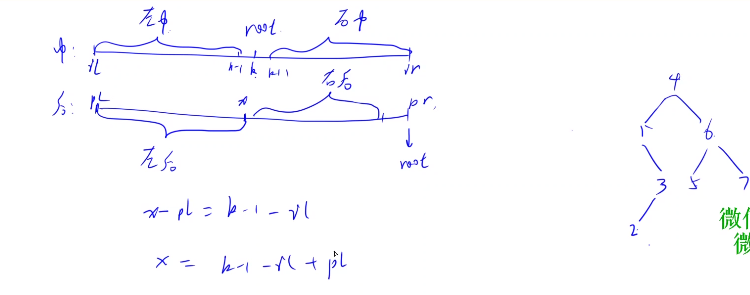 左中 root 右中
中: il k-1 k k+1 ir
后: pl x 右后 pr
左后 root
x - pl = k-1 - il
x = k-1 - il + pl
4
1 6
3 5 7
2
微
微